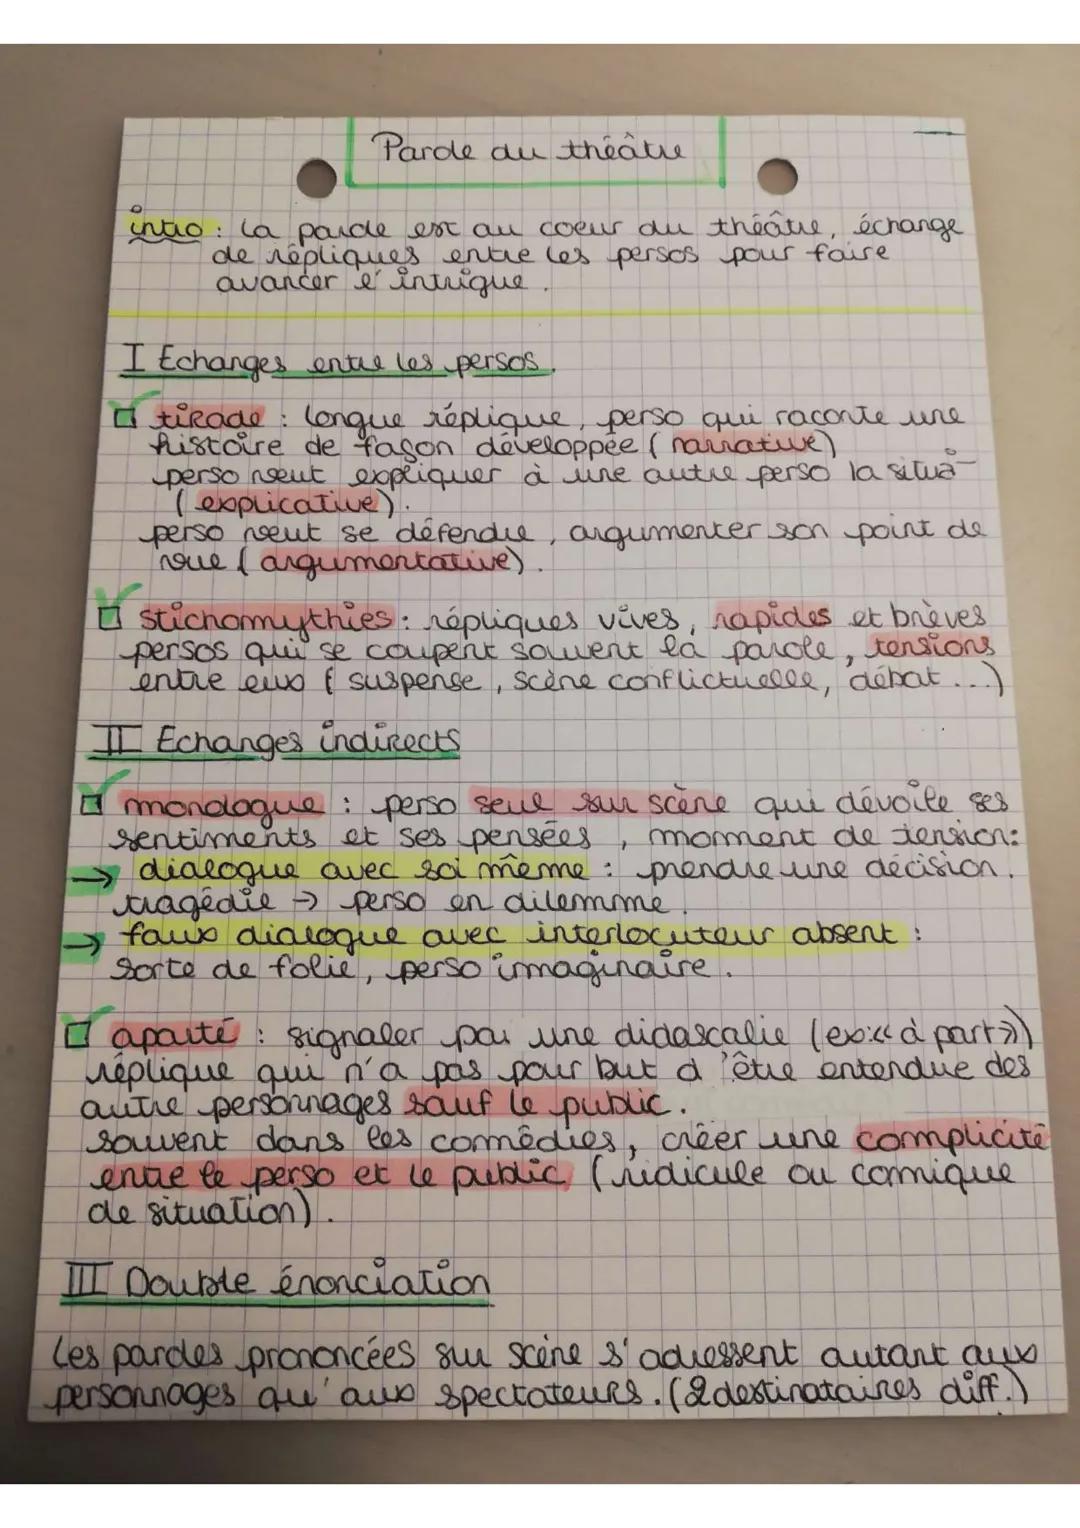 Parole au théâtre
intro : La parole est au coeur du théâtre, échange
de répliques entre les persos pour faire
avancer l'intrigue.
I Echanges entre les persos.
tirade : longue réplique, perso qui raconte une
histoire de façon développée (narrative)
perso veut expliquer à une autre perso la situa°
(explicative).
perso veut se défendre, argumenter son point de
vue (argumentative).
stichomythies : répliques vives, rapides et brèves
persos qui se coupent souvent la parole, tensions
entre eux (suspense, scène conflictuelle, débat...)
II Echanges indirects
monologue : perso seul sur scène qui dévoile ses
sentiments et ses pensées, moment de tension:
→ dialogue avec soi même : prendre une décision.
tragédie → perso en dilemme.
→ faux dialogue avec interlocuteur absent :
sorte de folie, perso imaginaire.
aparté : signaler par une didascalie (ex:«à part»)
réplique qui n'a pas pour but d'être entendue des
autre personnages sauf le public.
souvent dans les comédies, créer une complicité
entre le perso et le public (ridicule ou comique
de situation).
III Double énonciation
Les paroles prononcées sur scène s'adressent autant aux
personnages qu'aux spectateurs. (2 destinataires diff.)